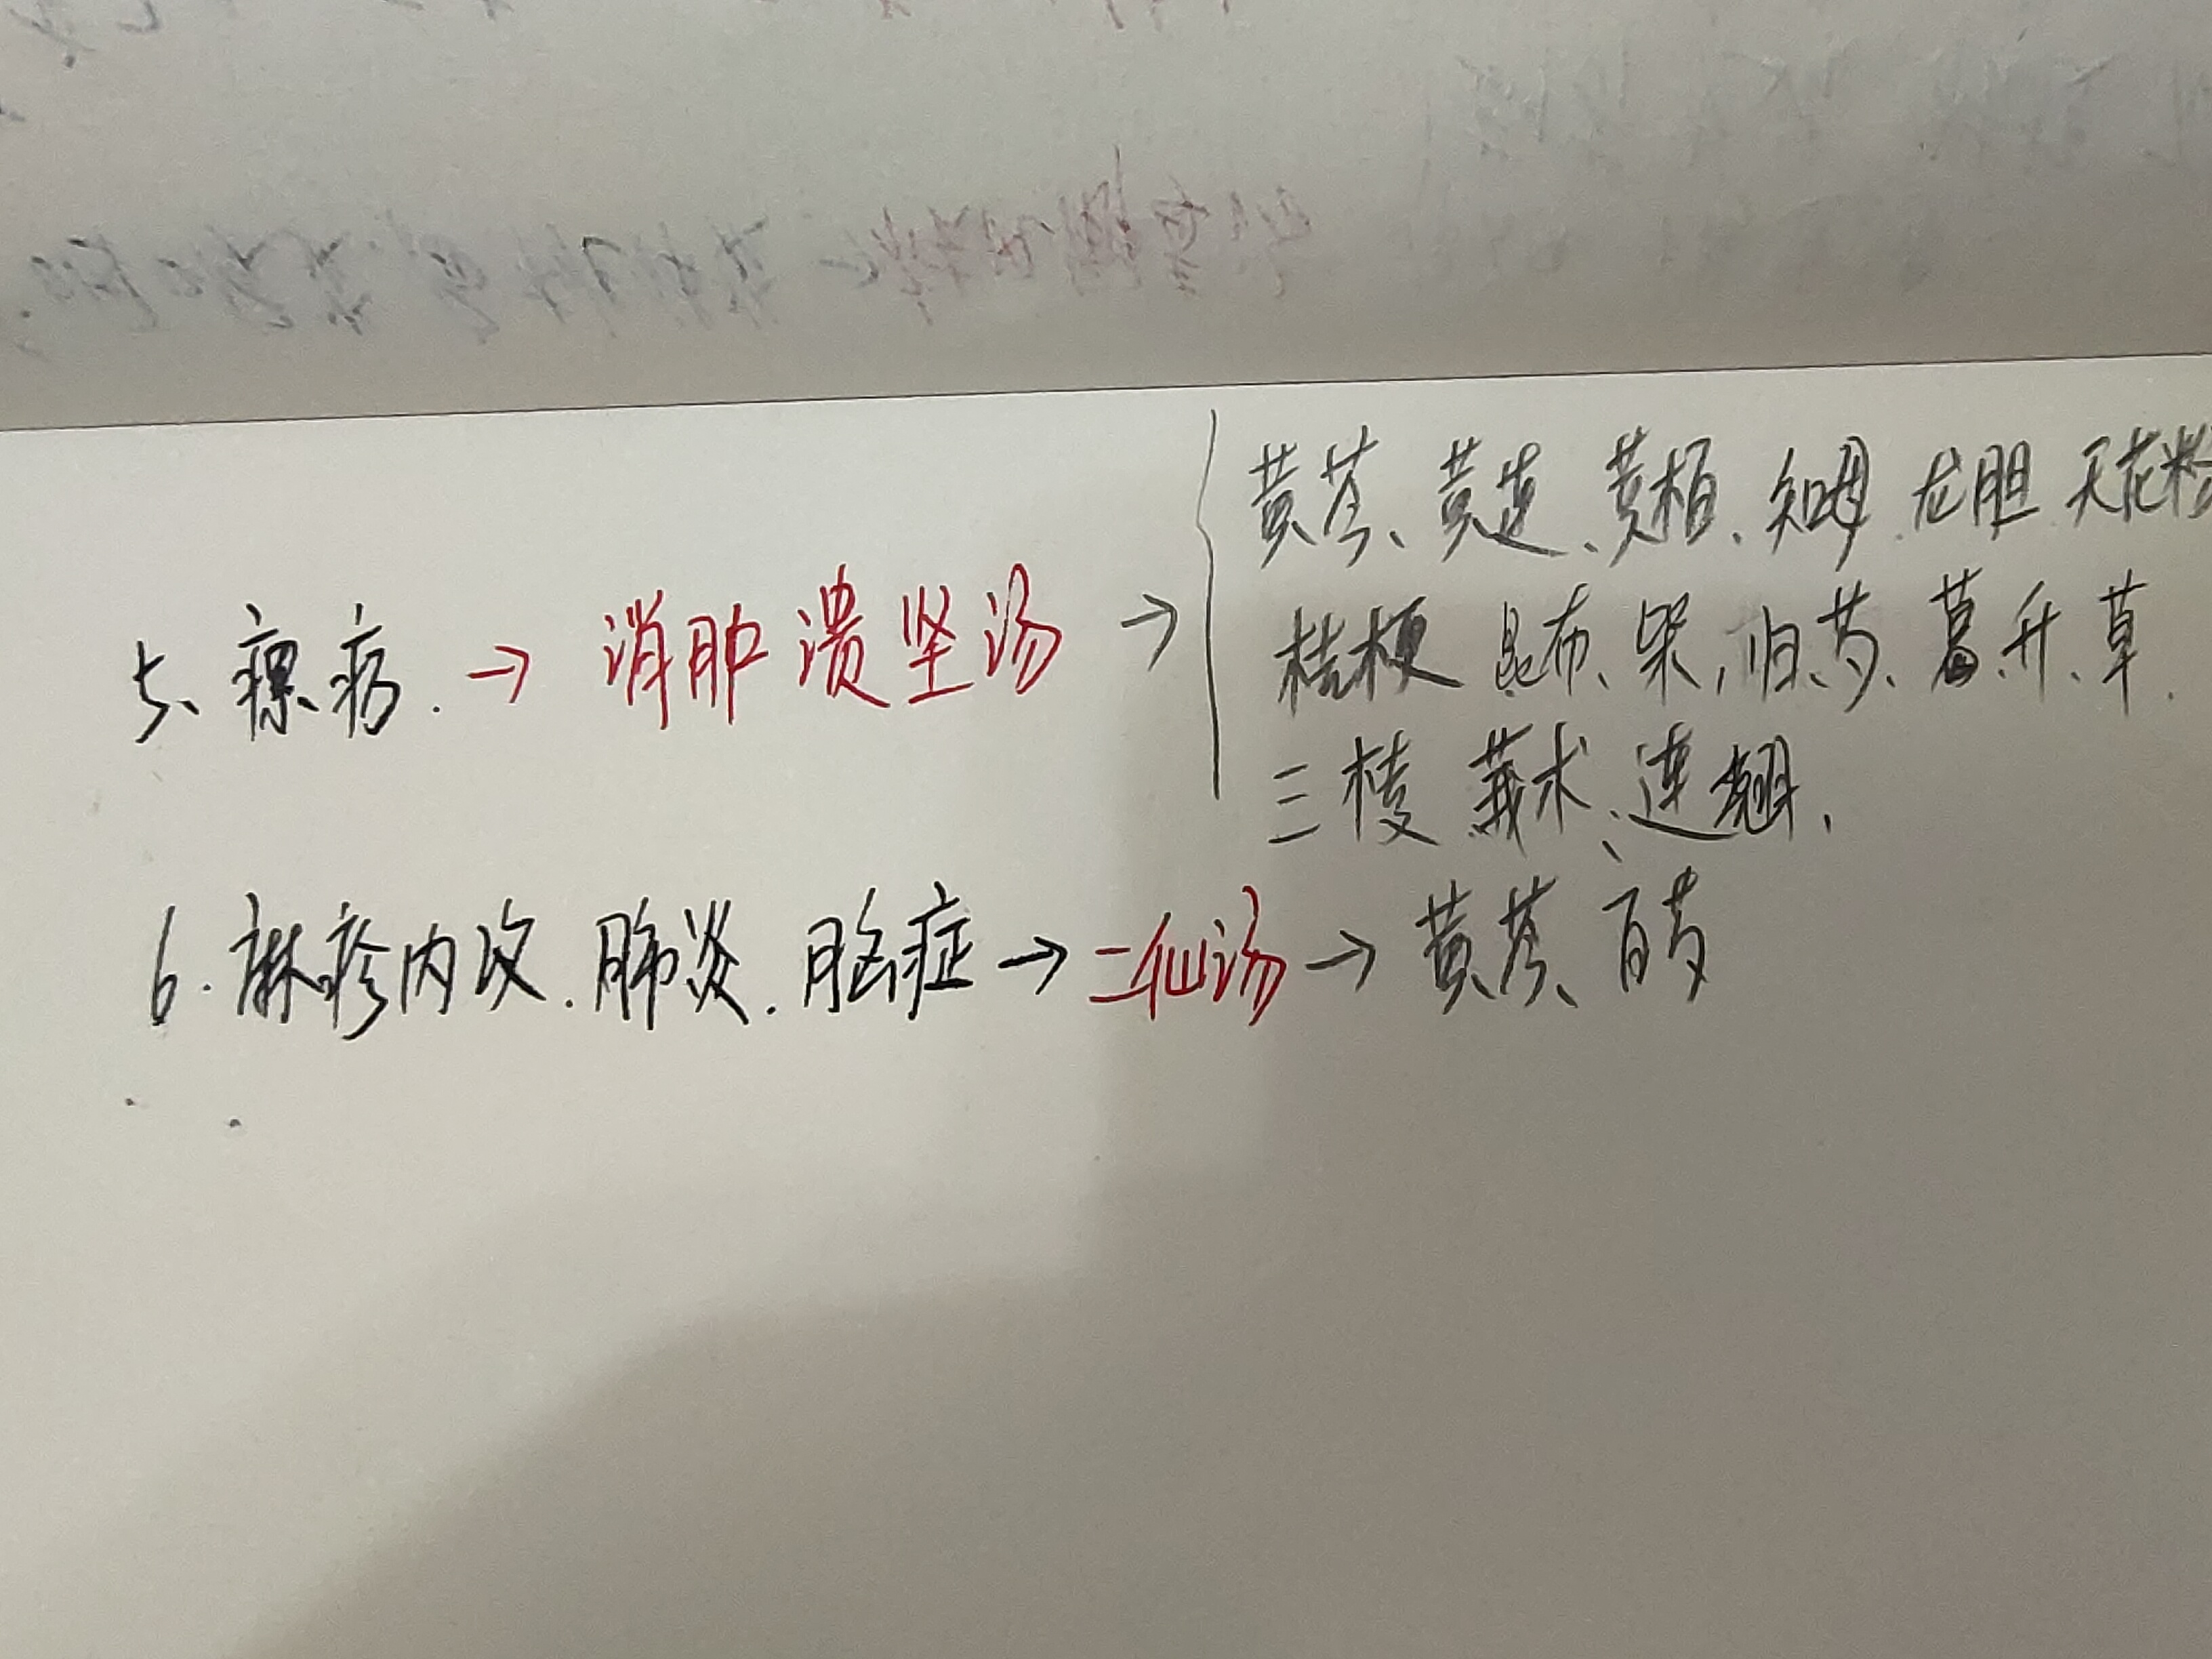 黄芩、黄连、黄柏、知母、龙胆、天花粉
5、瘰疬. → 消肿溃坚汤 →
桔梗 昆布、柴、归、芍、葛、升、草.
三棱 莪术、连翘、
6. 麻疹内攻. 肺炎. 脑症 → 二仙汤 → 黄芩、白芍